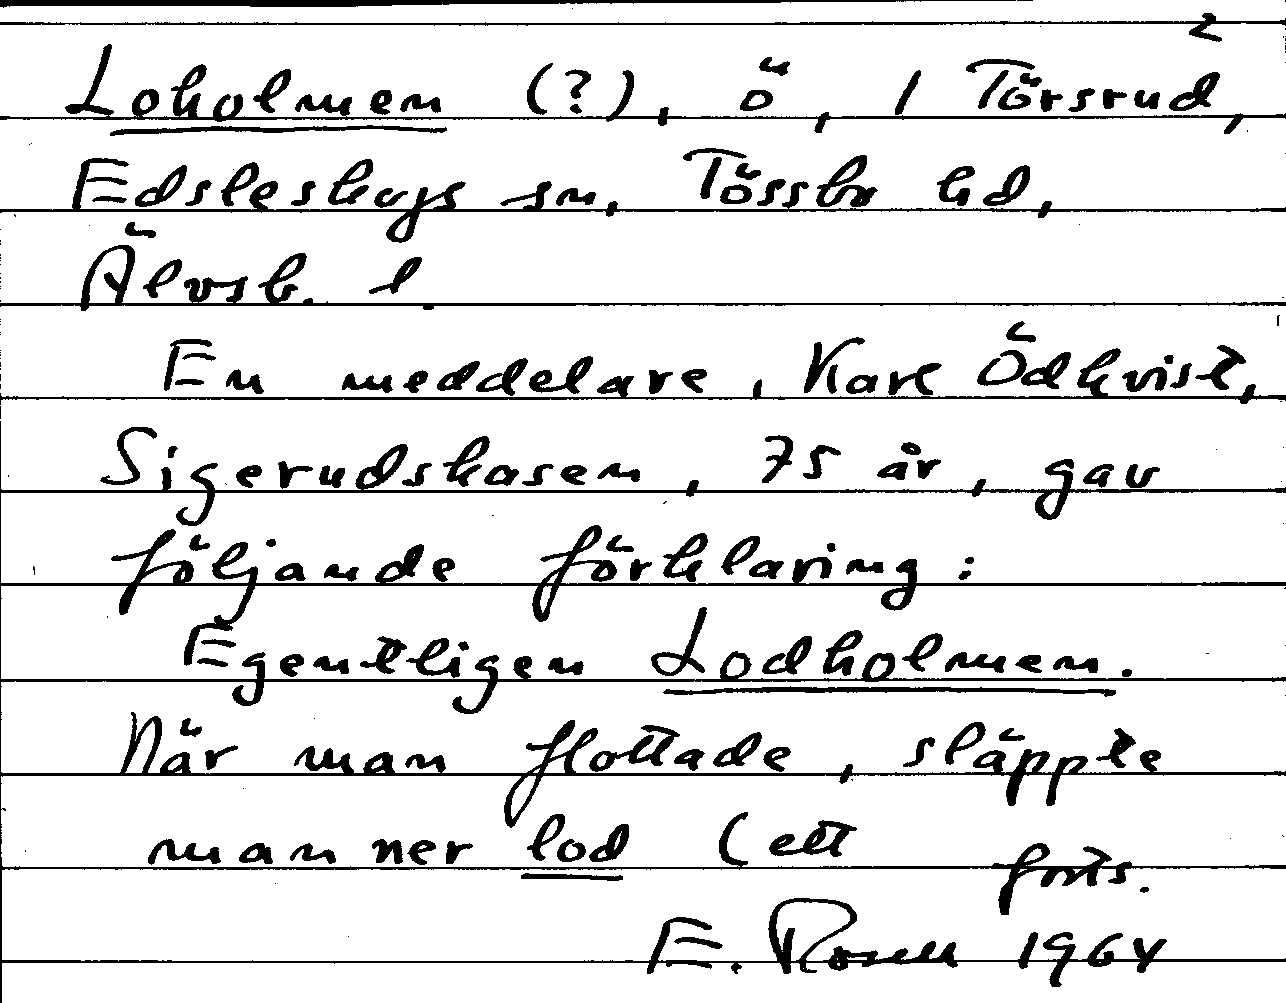 2
Loholmen (?), ö, 1 Törsrud,
Edsleskogs sn, Tössbo hd,
Älvsb. l.
En meddelare, Karl Ödkvist,
Sigerudskasen, 75 år, gav
följande förklaring:
Egentligen Lodholmen.
När man flottade, släppte
man ner lod (ett
forts.
E. Rosell 1964